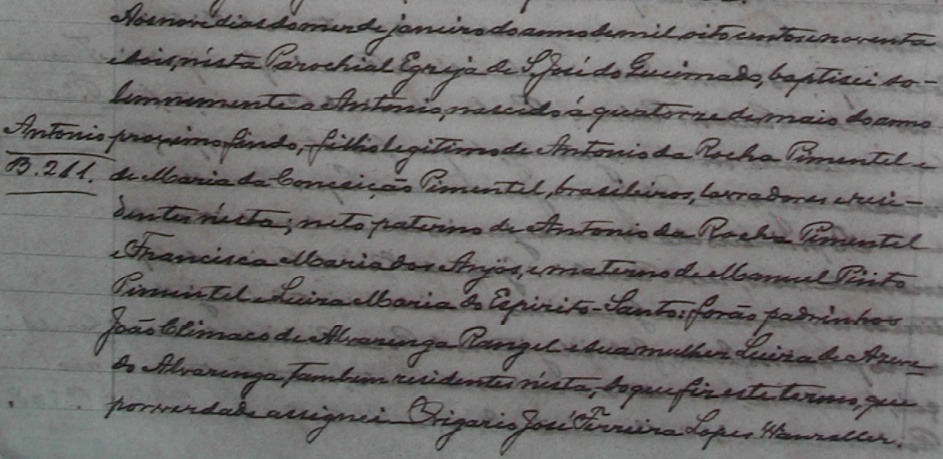 Aos nove dias do mez de janeiro do anno de mil oito centos e noventa
e dois, n'esta Parochial Egreja de S. José do Queimado, baptisei so-
lemnemente a Antonio, nascido á quatorze de maio do anno
Antonio proximo findo, filho legitimo de Antonio da Rocha Pimentel e
B. 211. de Maria da Conceição Pimentel, brasileiros, lavradores e resi-
dentes n'esta; neto paterno de Antonio da Rocha Pimentel
e Francisca Maria dos Anjos, e materno de Manuel Pinto
Pimentel e Luiza Maria do Espirito-Santo: forão padrinhos
João Climaco de Alvarenga Rangel e sua mulher Luiza de Azeve
do Alvarenga tambem residentes n'esta, do que fiz este termo, que
por verdade assignei. Vigario José Ferreira Lopes